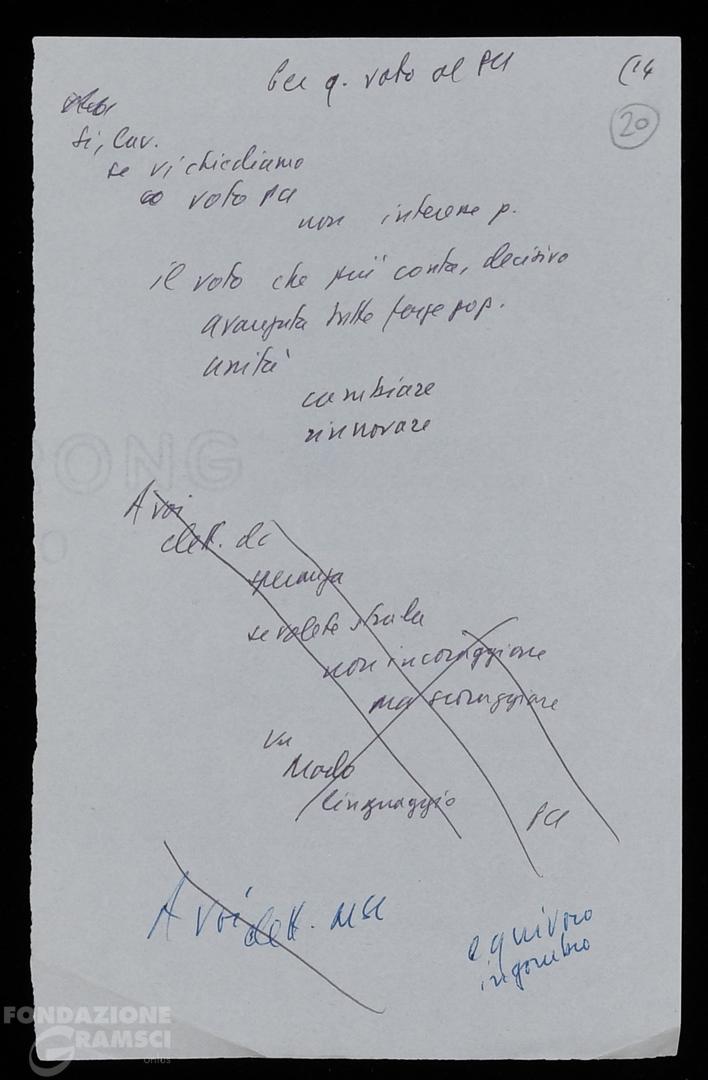 Per q. voto al PCI (14
20
Si, lav.
se vi chiediamo
voto PCI
non interesse p.
il voto che più conta, decisivo
avanzata tutte forze pop.
unità
cambiare
rinnovare
ONG
A voi
elett. dc
speranza
se volete strada
non incoraggiare
ma scoraggiare
Un
Modo
linguaggio
PCI
A voi
elett. MSI
equivoco
ingombro
FONDAZIONE
GRAMSCI
onlus